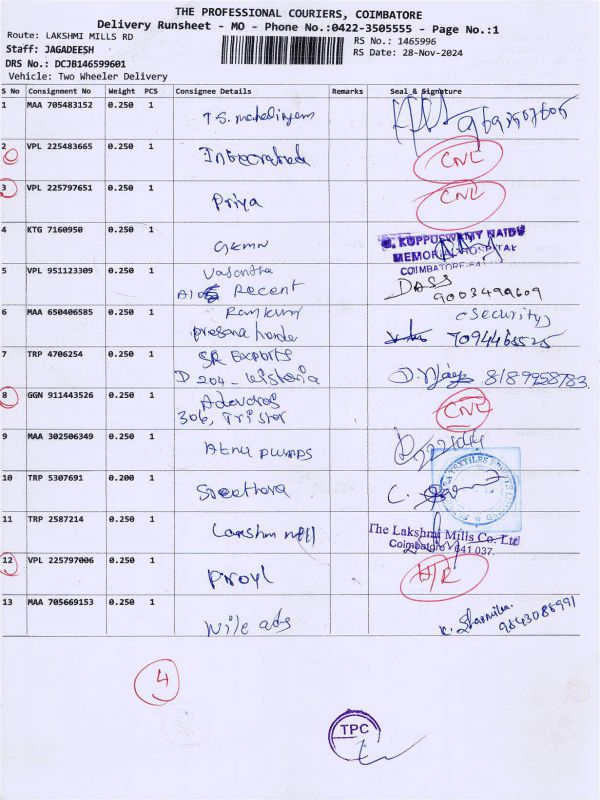 THE PROFESSIONAL COURIERS, COIMBATORE
Delivery Runsheet - MO - Phone No.:0422-3505555 - Page No.:1
Route: LAKSHMI MILLS RD
RS No.: 1465996
Staff: JAGADEESH
RS Date: 28-Nov-2024
DRS No.: DCJB146599601
Vehicle: Two Wheeler Delivery
S No Consignment No Weight PCS Consignee Details Remarks Seal & Signature
1 MAA 705483152 0.250 1
2 VPL 225483665 0.250 1 CNL
3 VPL 225797651 0.250 1 Priya CNL
4 KTG 7160950 0.250 1 GEMN
G. KUPPUSWAMY NAIDU
MEMORIAL HOSPITAL
COIMBATORE-641
5 VPL 951123309 0.250 1 Vasantha
Recent DASS
9003499609
6 MAA 650406585 0.250 1 Ram kumar
(Security)
7094465525
7 TRP 4706254 0.250 1 SR Exports
D 204 -
8 GGN 911443526 0.250 1 CNL
306,
9 MAA 302506349 0.250 1 PUMPS
10 TRP 5307691 0.200 1 Sreethara
11 TRP 2587214 0.250 1 Lakshmi mill
The Lakshmi Mills Co. Ltd
Coimbatore - 641 037.
12 VPL 225797006 0.250 1
13 MAA 705669153 0.250 1 Nile ads K. Sharmila
9843088991
4
TPC